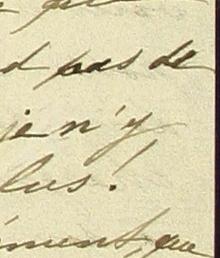 que
d pas de
je n'y
lus!
ément, que